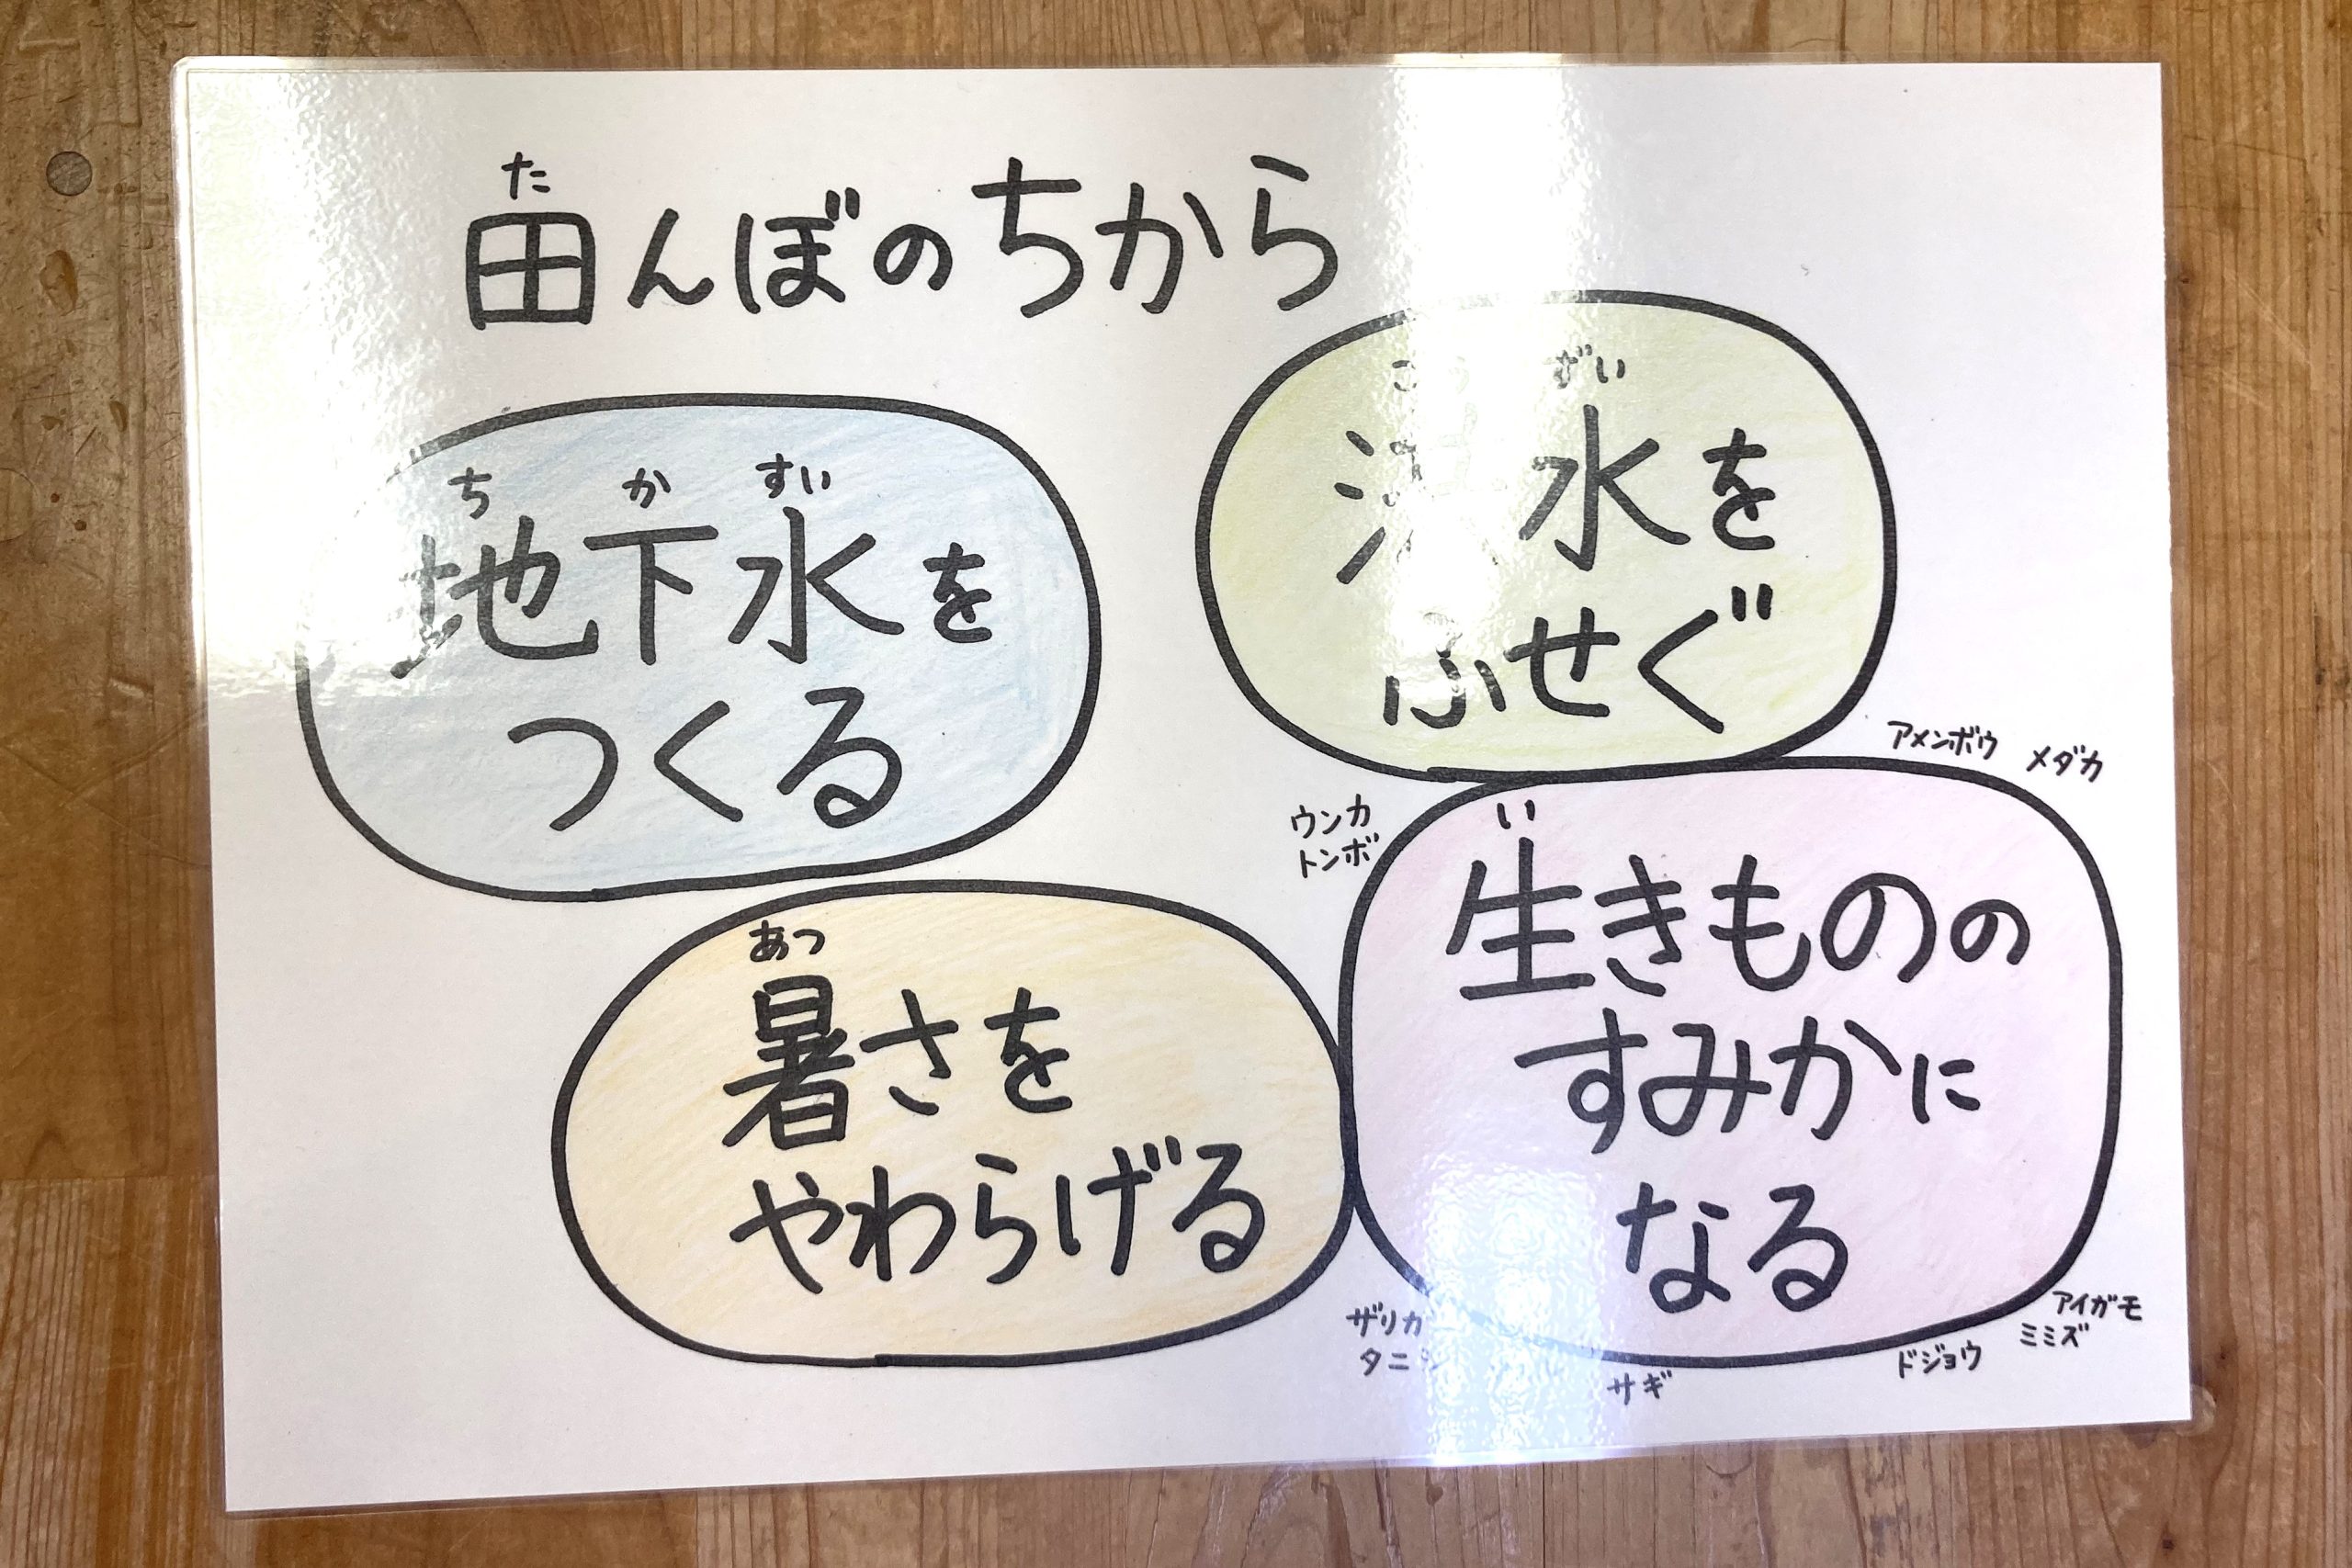 田んぼのちから
た
地下水を
ち か すい
つくる
水を
ずい
ふせぐ
暑さを
あつ
やわらげる
生きものの
い
すみかに
なる
アメンボウ メダカ
ウンカ
トンボ
サギ
ドジョウ
アイガモ
ミミズ